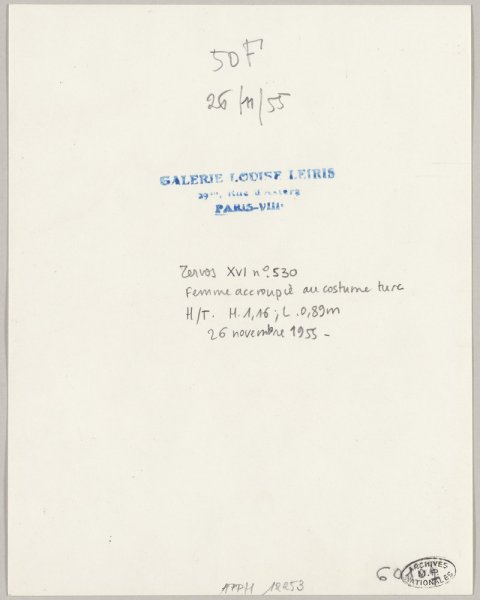 50F
26/11/55
GALERIE LOUISE LEIRIS
29bis, Rue d'Astorg
PARIS-VIIIe
Zervos XVI n°. 530
Femme accroupie au costume turc
H/T. H. 1,16 ; L. 0,89m
26 novembre 1955 -
ARCHIVES
NATIONALES
APPH 12253